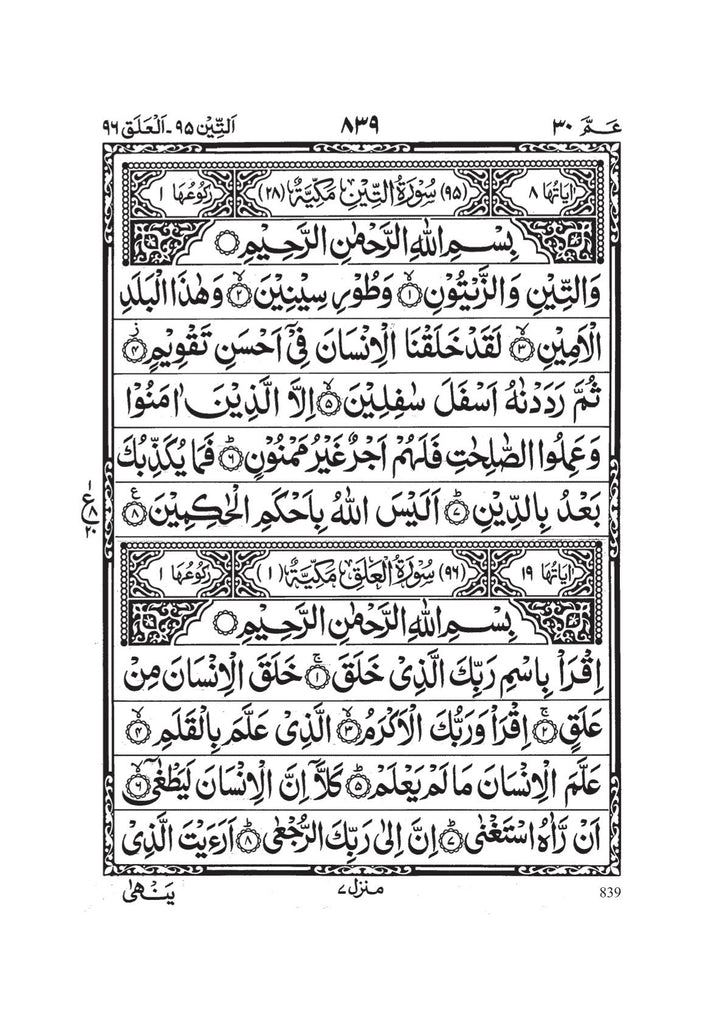 عَمَّ ۳۰ ۸۳۹ اَلتِّيْن ۹۵ - اَلْعَلَق ۹۶
اٰيَاتُهَا ۸ (۹۵) سُوْرَةُ التِّيْنِ مَكِّيَّةٌ (۲۸) رُكُوْعُهَا ۱
بِسْمِ اللّٰهِ الرَّحْمٰنِ الرَّحِيْمِ
وَالتِّيْنِ وَالزَّيْتُوْنِ ۙ‏۱ وَطُوْرِ سِيْنِيْنَ ۙ‏۲ وَهٰذَا الْبَلَدِ
الْاَمِيْنِ ۙ‏۳ لَقَدْ خَلَقْنَا الْاِنْسَانَ فِيْۤ اَحْسَنِ تَقْوِيْمٍ ز ۴
ثُمَّ رَدَدْنٰهُ اَسْفَلَ سٰفِلِيْنَ ۙ‏۵ اِلَّا الَّذِيْنَ اٰمَنُوْا
وَعَمِلُوا الصّٰلِحٰتِ فَلَهُمْ اَجْرٌ غَيْرُ مَمْنُوْنٍ ؕ‏۶ فَمَا يُكَذِّبُكَ
بَعْدُ بِالدِّيْنِ ؕ‏۷ اَلَيْسَ اللّٰهُ بِاَحْكَمِ الْحٰكِمِيْنَ ع ۸
ع ۱ ۸ ۲۰
اٰيَاتُهَا ۱۹ (۹۶) سُوْرَةُ الْعَلَقِ مَكِّيَّةٌ (۱) رُكُوْعُهَا ۱
بِسْمِ اللّٰهِ الرَّحْمٰنِ الرَّحِيْمِ
اِقْرَاْ بِاسْمِ رَبِّكَ الَّذِيْ خَلَقَ ۚ‏۱ خَلَقَ الْاِنْسَانَ مِنْ
عَلَقٍ ۚ‏۲ اِقْرَاْ وَرَبُّكَ الْاَكْرَمُ ۙ‏۳ الَّذِيْ عَلَّمَ بِالْقَلَمِ ۙ‏۴
عَلَّمَ الْاِنْسَانَ مَا لَمْ يَعْلَمْ ؕ‏۵ كَلَّاۤ اِنَّ الْاِنْسَانَ لَيَطْغٰۤى ۙ‏۶
اَنْ رَّاٰهُ اسْتَغْنٰى ؕ‏۷ اِنَّ اِلٰى رَبِّكَ الرُّجْعٰى ؕ‏۸ اَرَءَيْتَ الَّذِيْ
يَنْهٰى منزل ۷ 839